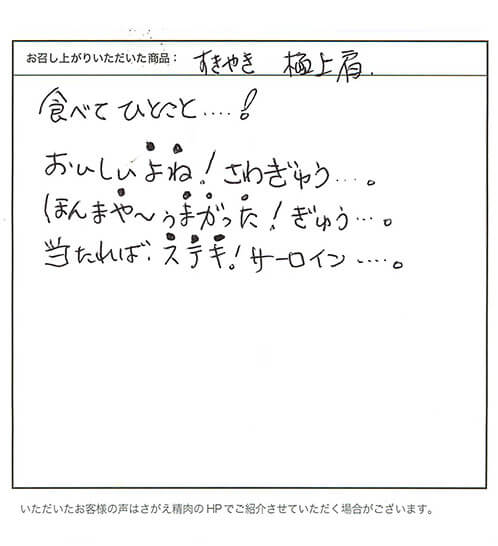 お召し上がりいただいた商品： すきやき 極上肩.
食べて ひとこと‥‥!
おいしいよね! さわぎゅう‥‥。
ほんまや〜うまかった! ぎゅう‥‥。
当たれば、ステキ! サーロイン‥‥。
いただいたお客様の声はさがえ精肉のHPでご紹介させていただく場合がございます。